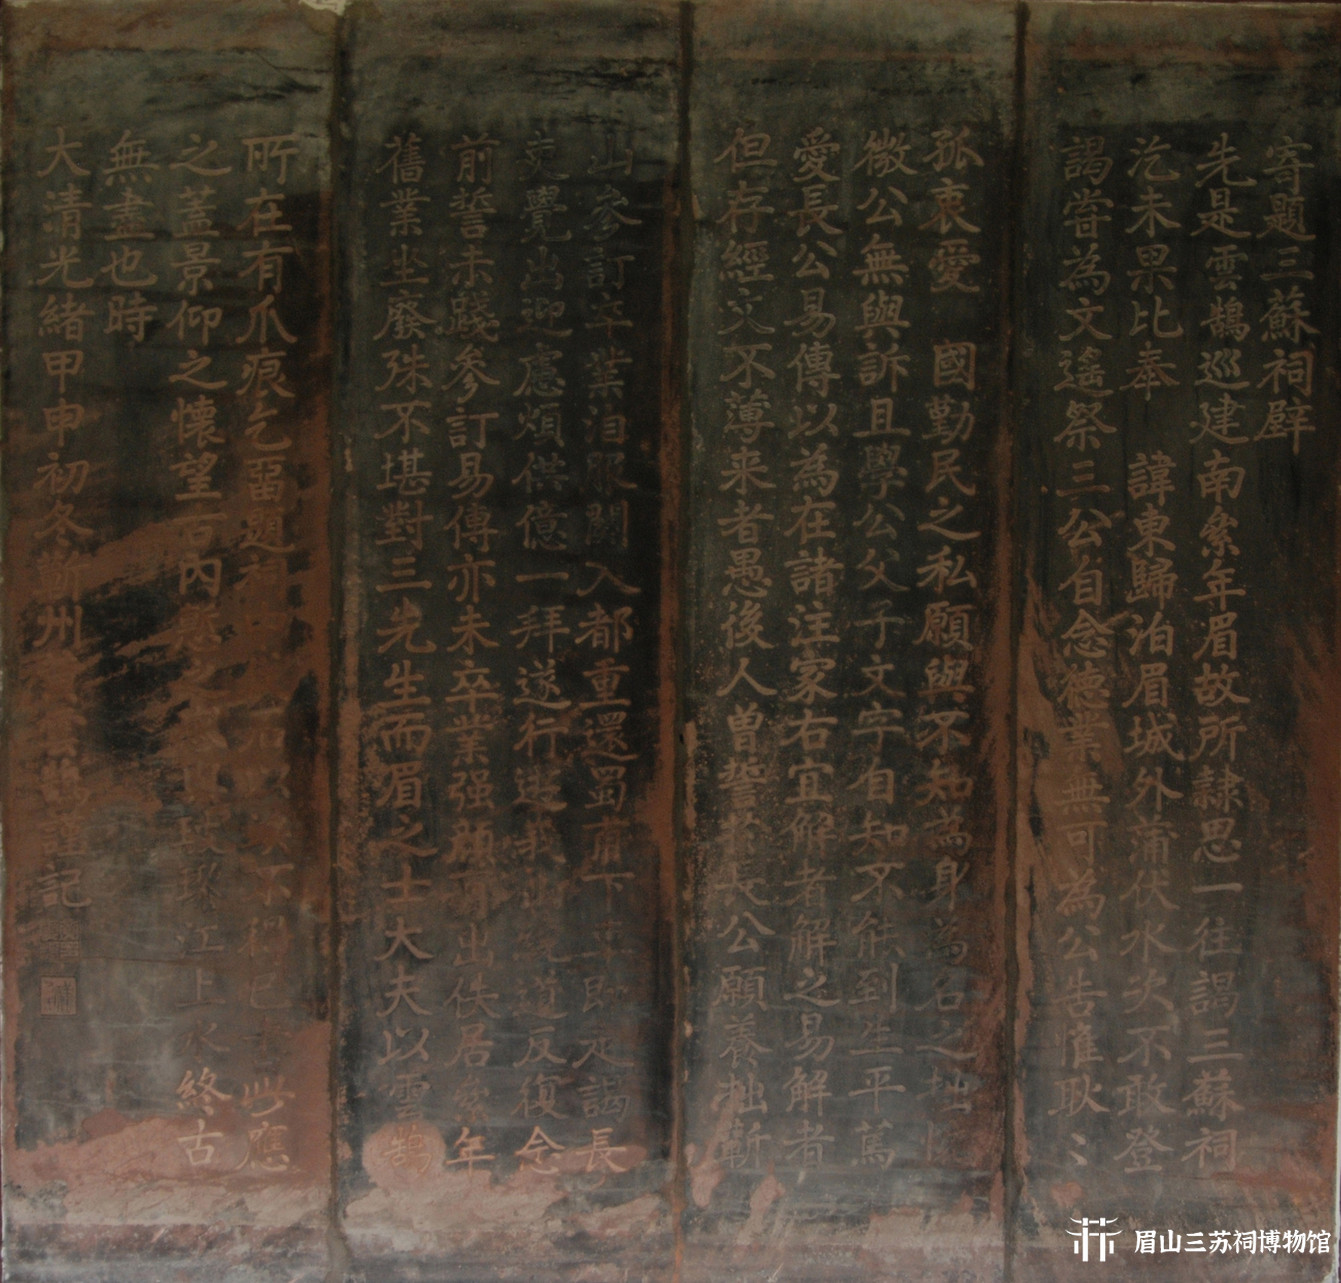 寄題三蘇祠壁
先是雲鵠巡建南絫年眉故所隷思一往謁三蘇祠
汔未果比奉 諱東歸泊眉城外蒲伏水次不敢登
謁嘗為文遙祭三公自念德業無可為公告惟耿〻
孤衷愛 國勤民之私願與不知為身為名之拙懷
微公無與訴且學公父子文字自知不能到生平篤
愛長公易傳以為在諸注家右宜解者解之易解者
但存經文不薄来者愚後人曾誓於長公願養拙蘄
山參訂卒業洎服闋入都重還蜀甫下車即走謁長
吏覺出迎慮煩供億一拜遂行遊我出繞道反復念
前誓未踐參訂易傳亦未卒業强顔而出佚居絫年
舊業坐廢殊不堪對三先生而眉之士大夫以雲鵠
所在有爪痕乞畱題祠 石以 不 已書此應
之蓋景仰之懷望古內慙之 玻瓈江上水終古
無盡也時
大清光緒甲申初冬蘄州 雲鵠謹記
眉山三苏祠博物馆